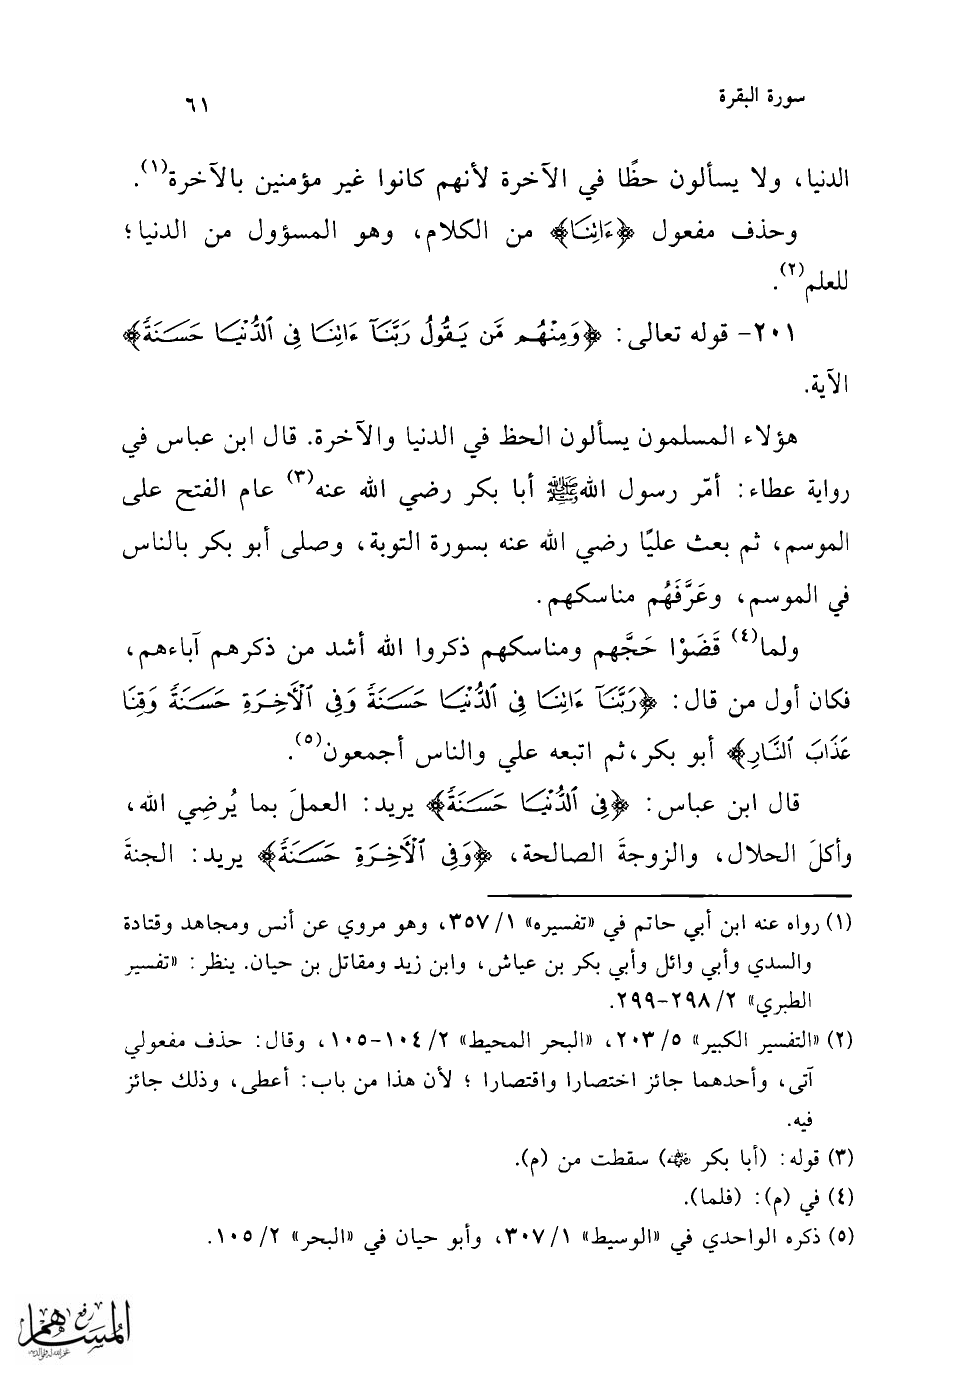 سورة البقرة ٦١
الدنيا، ولا يسألون حظًا في الآخرة لأنهم كانوا غير مؤمنين بالآخرة(١).
وحذف مفعول ﴿ءَاتِنَا﴾ من الكلام، وهو المسؤول من الدنيا؛
للعلم(٢).
٢٠١- قوله تعالى: ﴿وَمِنْهُم مَّن يَقُولُ رَبَّنَآ ءَاتِنَا فِى ٱلدُّنْيَا حَسَنَةً﴾
الآية.
هؤلاء المسلمون يسألون الحظ في الدنيا والآخرة. قال ابن عباس في
رواية عطاء: أمّر رسول الله ﷺ أبا بكر رضي الله عنه(٣) عام الفتح على
الموسم، ثم بعث عليًا رضي الله عنه بسورة التوبة، وصلى أبو بكر بالناس
في الموسم، وعَرَّفَهُم مناسكهم.
ولما(٤) قَضَوْا حَجَّهم ومناسكهم ذكروا الله أشد من ذكرهم آباءهم،
فكان أول من قال: ﴿رَبَّنَآ ءَاتِنَا فِى ٱلدُّنْيَا حَسَنَةً وَفِى ٱلْأَخِرَةِ حَسَنَةً وَقِنَا
عَذَابَ ٱلنَّارِ﴾ أبو بكر، ثم اتبعه علي والناس أجمعون(٥).
قال ابن عباس: ﴿فِى ٱلدُّنْيَا حَسَنَةً﴾ يريد: العملَ بما يُرضِي الله،
وأكلَ الحلال، والزوجةَ الصالحة، ﴿وَفِى ٱلْأَخِرَةِ حَسَنَةً﴾ يريد: الجنةَ
(١) رواه عنه ابن أبي حاتم في «تفسيره» ١/ ٣٥٧، وهو مروي عن أنس ومجاهد وقتادة
والسدي وأبي وائل وأبي بكر بن عياش، وابن زيد ومقاتل بن حيان. ينظر: «تفسير
الطبري» ٢/ ٢٩٨-٢٩٩.
(٢) «التفسير الكبير» ٥/ ٢٠٣، «البحر المحيط» ٢/ ١٠٤-١٠٥، وقال: حذف مفعولي
آتى، وأحدهما جائز اختصارا واقتصارا ؛ لأن هذا من باب: أعطى، وذلك جائز
فيه.
(٣) قوله: (أبا بكر رضي الله عنه) سقطت من (م).
(٤) في (م): (فلما).
(٥) ذكره الواحدي في «الوسيط» ١/ ٣٠٧، وأبو حيان في «البحر» ٢/ ١٠٥.
رفع
المساهم